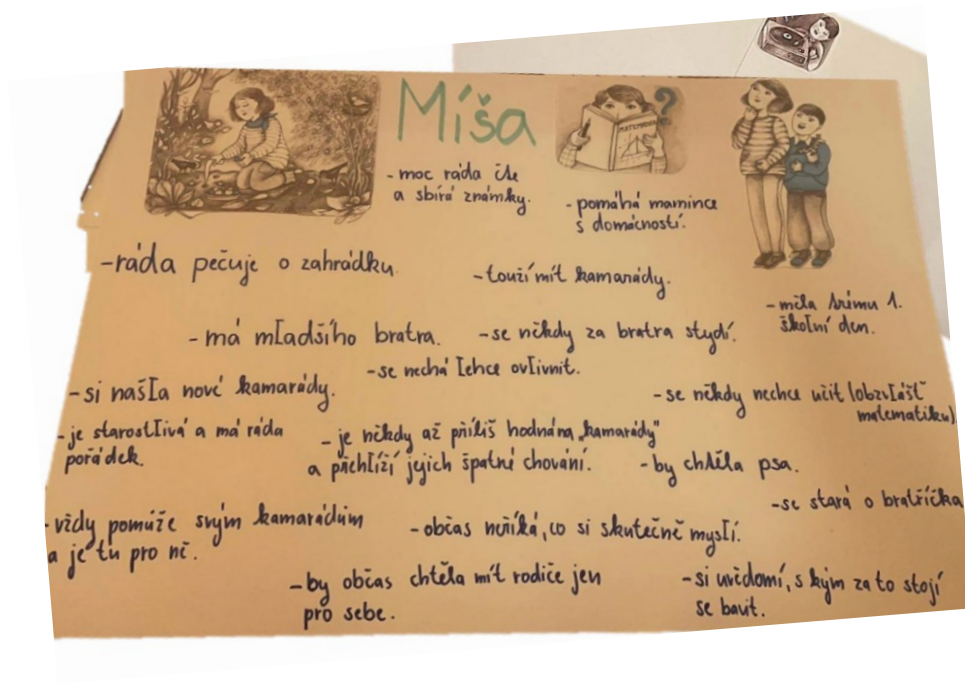 Míša
MATEMATIKA
?
- moc ráda čte
a sbírá známky.
- pomáhá mamince
s domácností.
- ráda pečuje o zahrádku
- touží mít kamarády.
- měla trému 1.
školní den.
- má mladšího bratra.
- se někdy za bratra stydí.
- se nechá lehce ovlivnit.
- si našla nové kamarády.
- se někdy nechce učit (obzvlášť
matematiku)
- je starostlivá a má ráda
pořádek.
- je někdy až příliš hodná na „kamarády"
a přehlíží jejich špatné chování.
- by chtěla psa.
- se stará o bratříčka
- vždy pomůže svým kamarádům
a je tu pro ně.
- občas neříká, co si skutečně myslí.
- by občas chtěla mít rodiče jen
pro sebe.
- si uvědomí, s kým za to stojí
se bavit.